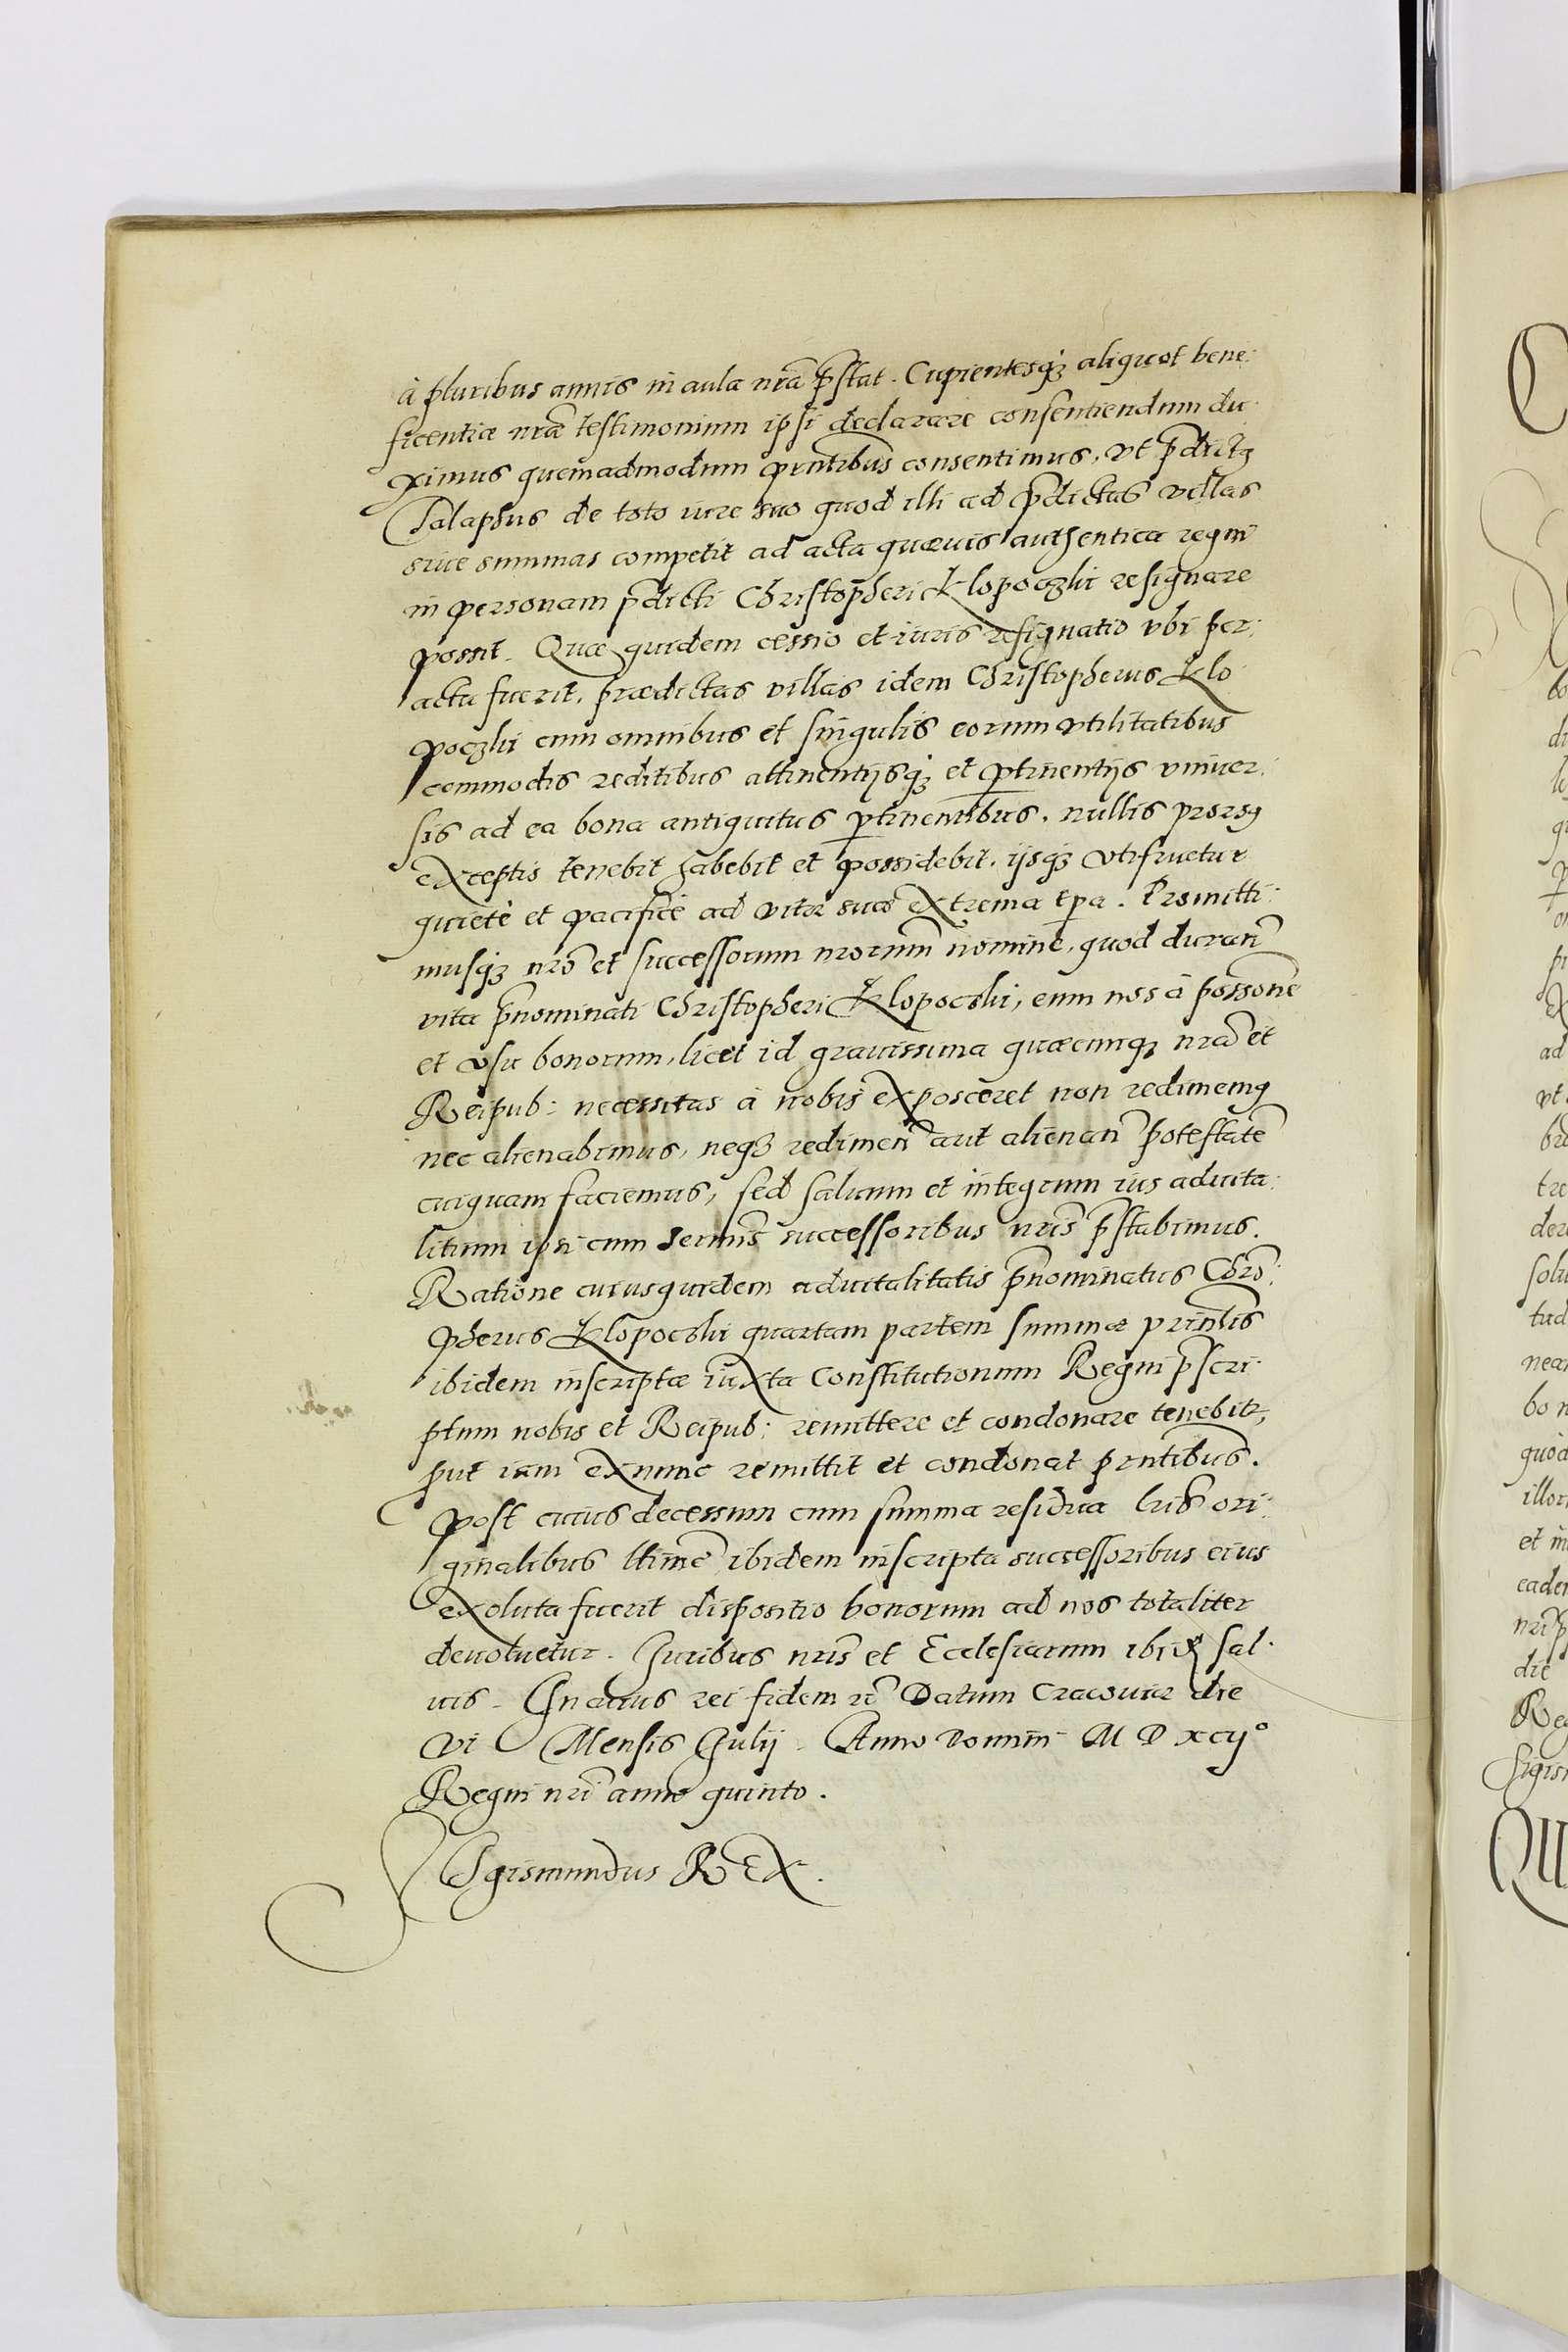 à pluribus annis in aula nrã p̃stat. Cupientesq́ȝ aliquot bene:
ficentiæ nræ̃ testimonium ipsi declarare consentiendum du:
ximus quemadmodum prñtibus consentimus, vt p̃dictȝ
Salapsus de toto iure suo quod illi ad p̃dictas villas
siue summas competit ad acta quæuis authentica regni
in personam p̃dicti Christopheri Klopoczki resignare
possit. Quæ quidem cessio et iuris resignatio vbi per:
acta fuerit, prædictas villas idem Christopherus Klo
poczki cum omnibus et singulis eorum vtilitatibus
commodis reditibus attinentijsq́ȝ et ꝑtinentijs vniuer:
sis ad ea bona antiquitus ꝑtinentibus, nullis prorsꝰ
exceptis tenebit habebit et possidebit, ijsq́ȝ vtifruetur
quietè et pacificè ad vitæ suæ extrema tp̃a. Promitti:
musq́ȝ nrõ et successorum nrorum̃ nomine, quod durañ
vita p̃nominati Christopheri Klopocski, eum nos à possonẽ
et vsu bonorum, licet id grauissima quæcunqȝ nrã et
Reipub: necessitas à nobis exposceret non redimemꝰ
nec alienabimus, neqȝ redimeñ aut alienañ potestatẽ
cuiquam faciemus, sed saluum et integrum ius aduita:
litium ipsi cum sermĩs successoribus nrĩs p̃stabimus.
Ratione cuiusquidem aduitalitatis p̃nominatus Chrõ:
pherus Klopocski quartam partem summæ prinl̃is
ibidem inscriptæ iuxta Constitutionum Regni p̃scri:
ptum nobis et Reipub: remittere et condonare tenebitr,
put iam exnunc remittit et condonat prñtibus.
Post cuius decessum cum summa residua lr̃is ori:
ginalibus ltimẽ ibidem inscripta successoribus eius
exoluta fuerit dispositio bonorum ad nos totaliter
deuoluetur. Juribus nrĩs et Ecclesiarum ibiꝗ sal:
uis. In cuius rei fidem rc̃ Datum Cracouiæ die
VI Mensis Julij. Anno Domini M D xcij°
Regni nrĩ anno quinto.
Sigismundus REX.